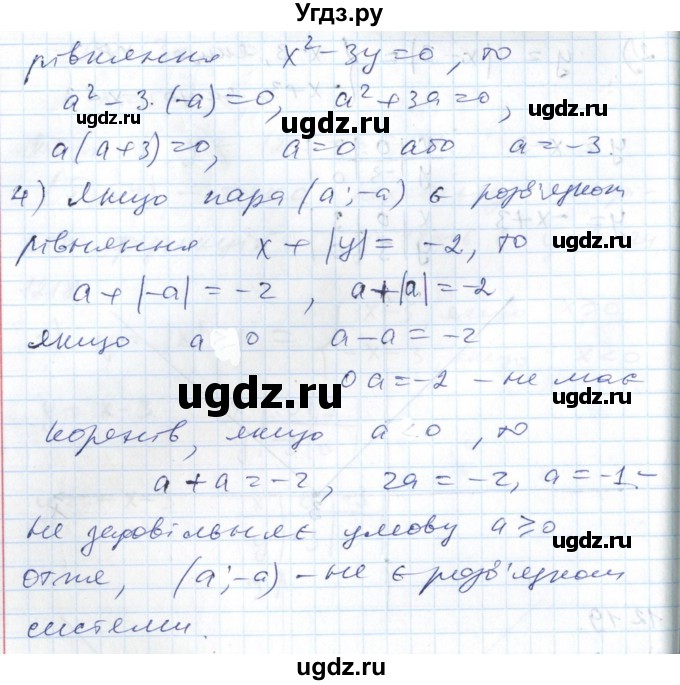 Угдз.ру
рівняння x² - 3y = 0, то
a² - 3·(-a) = 0, a² + 3a = 0,
ugdz.ru ugdz.ru
a(a+3) = 0, a = 0 або a = -3.
4) Якщо пара (a; -a) є розв'язком
ugdz.ru
рівняння x + |y| = -2, то
ugdz.ru ugdz.ru
a + |-a| = -2, a + |a| = -2
якщо a 0 a - a = -2
ugdz.ru
0a = -2 - не має
ugdz.ru
коренів, якщо a 0, то
a + a = -2, 2a = -2, a = -1 -
ugdz.ru
не задовільняє умову a ≥ 0
ugdz.ru
отже, (a; -a) - не є розв'язком
ugdz.ru
системи.
ugdz.ru